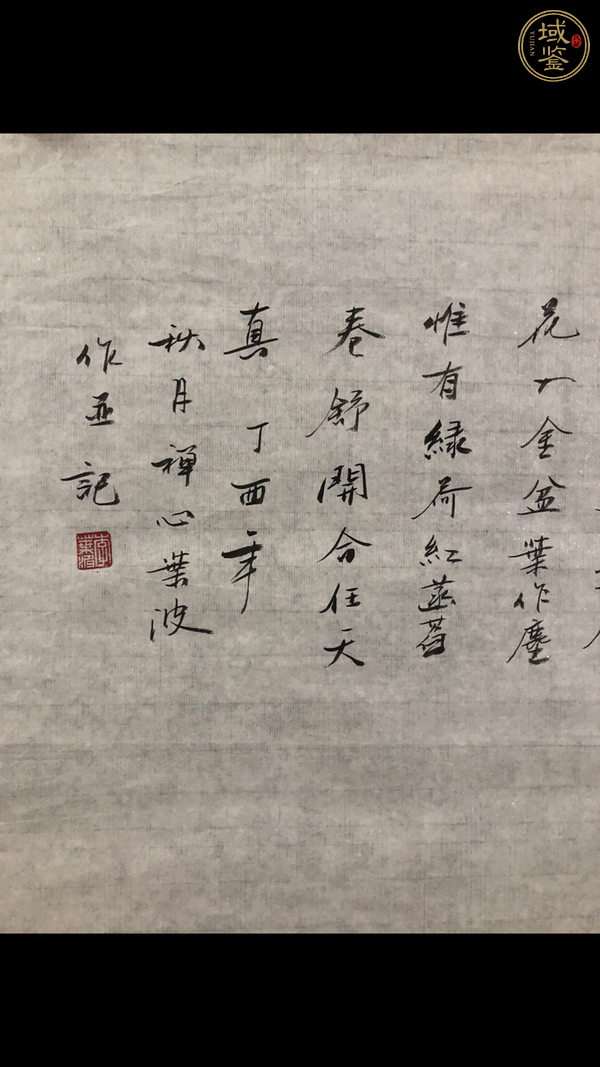 花入金盆葉作塵
惟有綠荷紅菡萏
卷舒開合任天
真 丁酉年
秋月禪心葉波
作並記
域鉴
YUJIAN